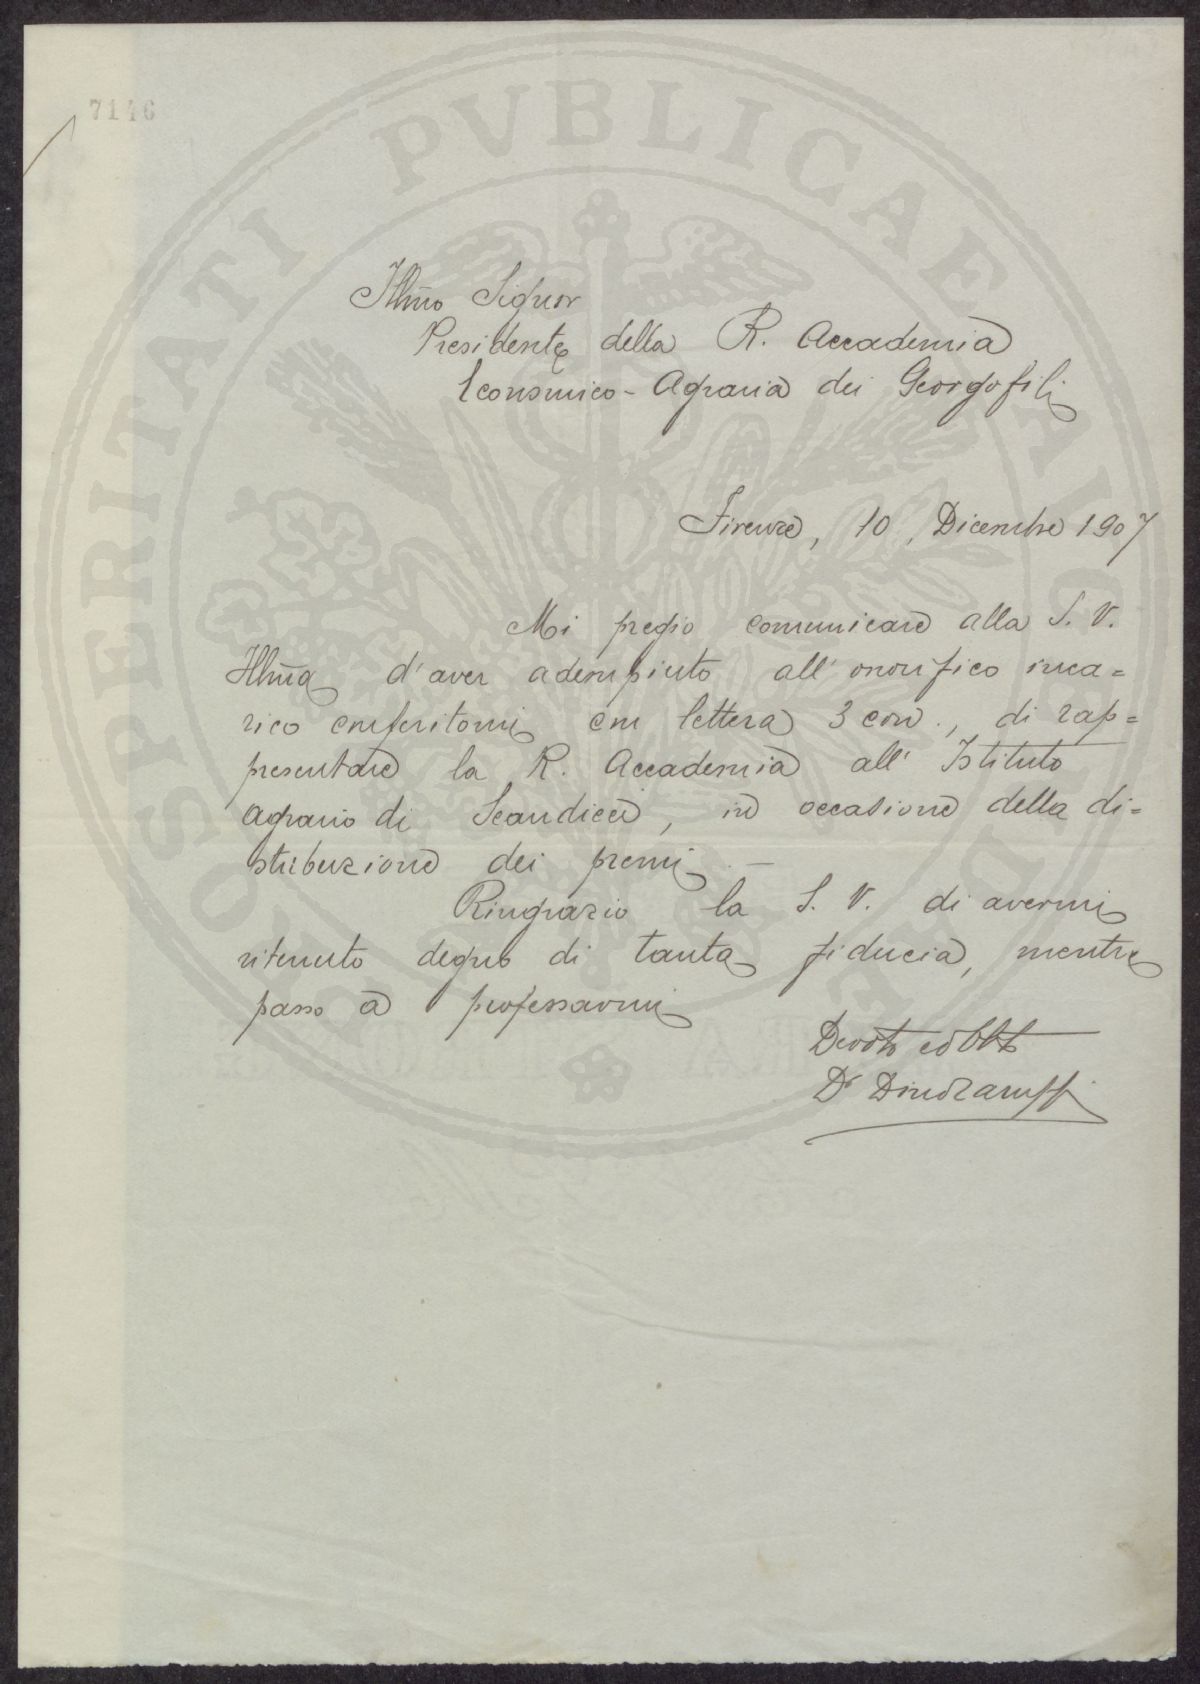 7146
Illmo Signor
Presidente della R. Accademia
Economico-Agraria dei Georgofili
Firenze, 10, Dicembre 1907
Mi pregio comunicare alla S. V.
Illma d'aver adempiuto all'onorifico inca=
rico conferitomi con lettera 3 corr., di rap=
presentare la R. Accademia all'Istituto
Agrario di Scandicci, in occasione della di=
stribuzione dei premi. —
Ringrazio la S. V. di avermi
ritenuto degno di tanta fiducia, mentre
passo a professarmi
Devoto ed Obbto
Dr Dino
PROSPERITATI PVBLICAE AVGENDAE